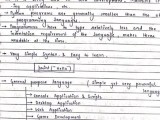 Python programs are generally smaller than the other
programming languages.
Programmers have to type relatively less and the
indentation requirement of the language makes them
readable all the time.
Very Simple Syntax & Easy to learn
print("Hello")
General-purpose language (Simple yet very powerful
language)
Console Application & Scripts
Desktop Application
Web Application
Game Development